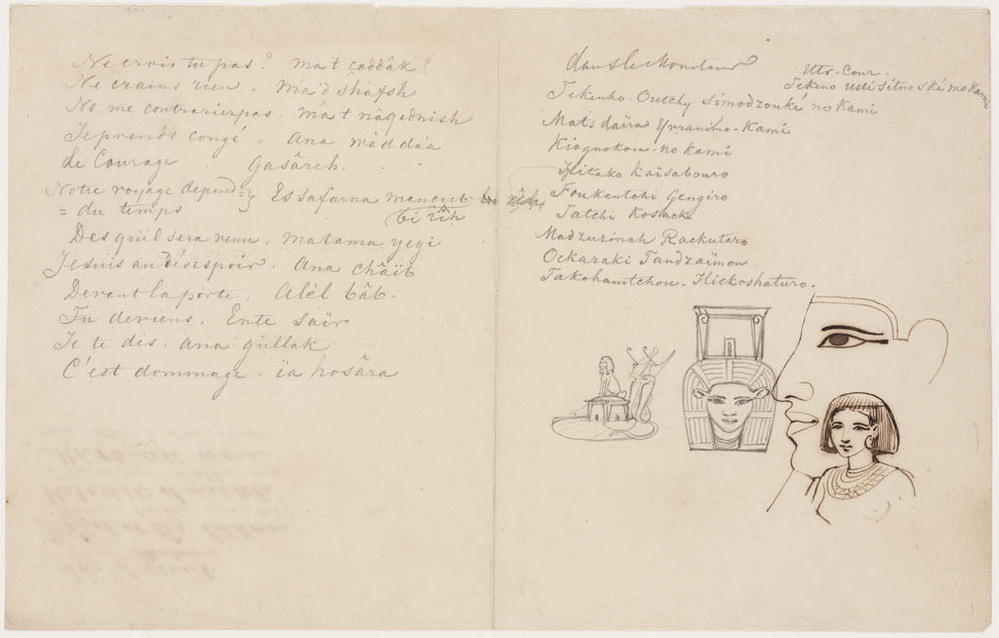 Ne crois tu pas? ma't ceddâk?
Ne crains rien. ma'd shâfsh
Ne me contrarierpas. mâ't nâqednish
Je prends congé. Ana wèddáá
de Courage. Gasârch.
Notre voyage depend
= du temps
Essafarna
bi rîh
Des qu'il sera venu. matama yegi
Je suis au désespoir. Ana châïb
Devant la porte. Alèl bâb.
Tu deviens. Ente Saïr
Je te dis. ana gullak
C'est dommage. ïa hosâra
dans le Moniteur
Uts. Cour.
Tekeno
no Kami
Tekenko. Outchy Simodzouké no Kami
Mats daïra Yvranimo-Kami
Kiognokou-no kami
Hitako Kaïsabouro
Foukentchi Gengiro
Tatchi Kosack
Madzusinah Rackutaro
Ockazaki Tandzaïmon
Takohamtchou. Hickoshaturo.